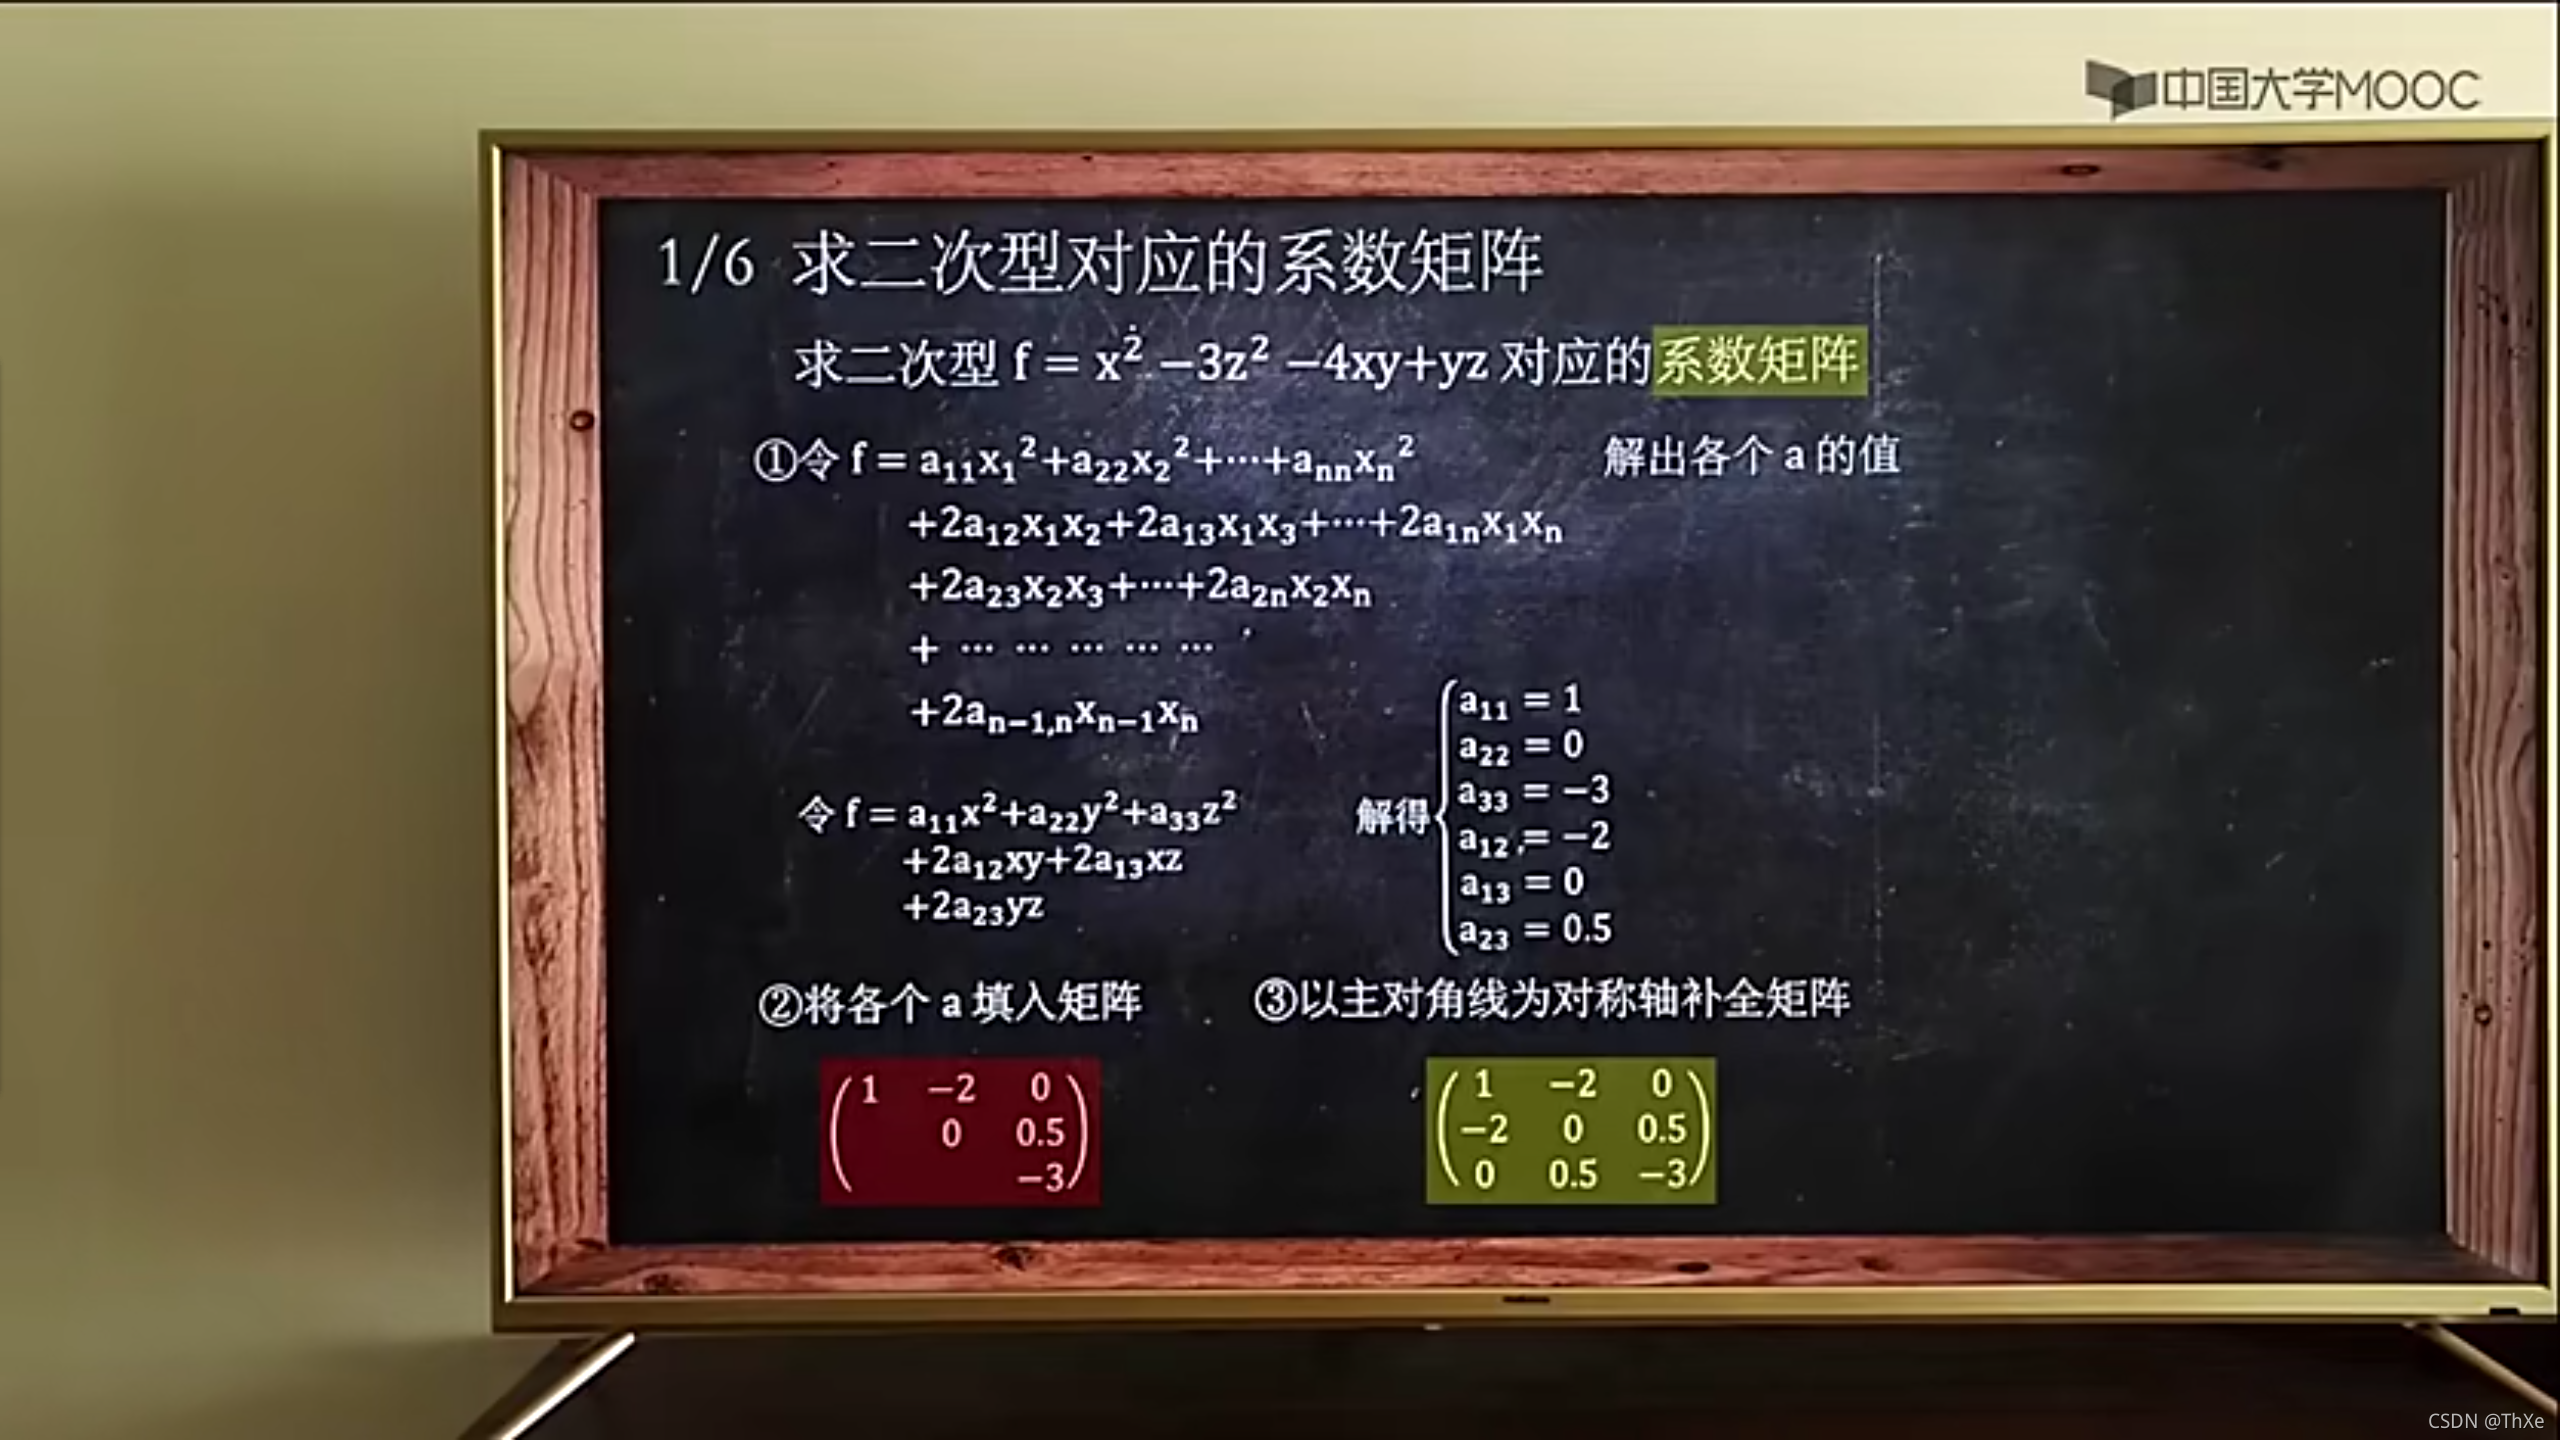 中国大学MOOC
1/6 求二次型对应的系数矩阵
求二次型 f = x² −3z² −4xy+yz 对应的系数矩阵
①令 f = a₁₁x₁²+a₂₂x₂²+⋯+aₙₙxₙ² 解出各个 a 的值
+2a₁₂x₁x₂+2a₁₃x₁x₃+⋯+2a₁ₙx₁xₙ
+2a₂₃x₂x₃+⋯+2a₂ₙx₂xₙ
+ ⋯ ⋯ ⋯ ⋯ ⋯
+2aₙ₋₁,ₙxₙ₋₁xₙ
令 f = a₁₁x²+a₂₂y²+a₃₃z²
+2a₁₂xy+2a₁₃xz
+2a₂₃yz
解得
a₁₁ = 1
a₂₂ = 0
a₃₃ = −3
a₁₂ = −2
a₁₃ = 0
a₂₃ = 0.5
②将各个 a 填入矩阵 ③以主对角线为对称轴补全矩阵
1 −2 0
0 0.5
−3
1 −2 0
−2 0 0.5
0 0.5 −3
CSDN @ThXe